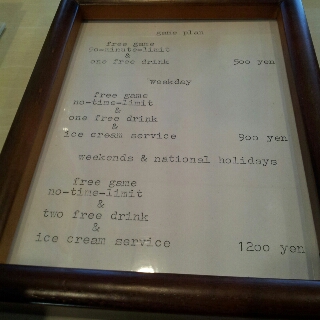 game plan
free game
&
one free drink 500 yen
weekday
free game
no-time-limit
&
one free drink
&
ice cream service 900 yen
weekends & national holidays
free game
no-time-limit
&
two free drink
&
ice cream service 1200 yen